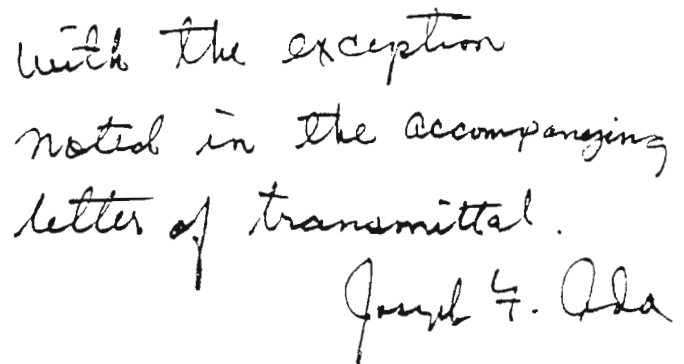 with the exception
noted in the accompanying
letter of transmittal.
Joseph F. Ada